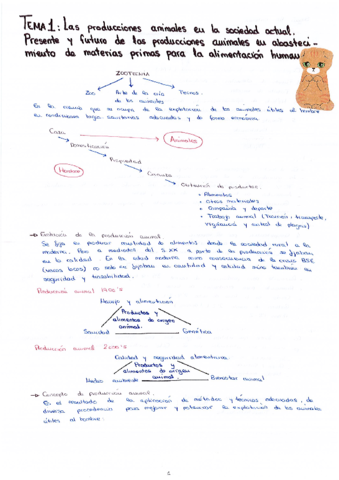 TEMA 1: Las producciones animales en la sociedad actual.
Presente y futuro de las producciones animales en abasteci-
miento de materias primas para la alimentación humana
ZOOTECNIA
Zoo Arte de la cría Tecnos.
de los animales
Es la ciencia que se ocupa de la explotación de los animales útiles al hombre
en condiciones
Caza Animales
Domesticación
Propiedad
Hombre
Obtención de productos.
• Alimentos
• Otros materiales
• Compañía y deporte
• Trabajo animal (tracción, transporte,
vigilancia y control de plagas)
→ Evolución de la producción animal.
cantidad de alimentos desde la sociedad rural a la
moderna. Pero a mediados del S. XX a parte de la producción se fijaban
en la calidad. En la edad moderna BSE
(vacas locas) no solo se fijaban en cantidad y calidad sino también en
seguridad y
Producción animal
Manejo y alimentación
Productos y
alimentos de origen
animal.
Sanidad Genética
Producción animal
Calidad y seguridad alimentaria
Productos y
alimentos de origen
animal
Medio ambiente Bienestar animal
→ Concepto de producción animal.
Es el resultado de la aplicación de métodos y técnicas adecuadas, de
diversa procedencia para mejorar y potenciar la explotación de los animales
útiles al hombre.
1